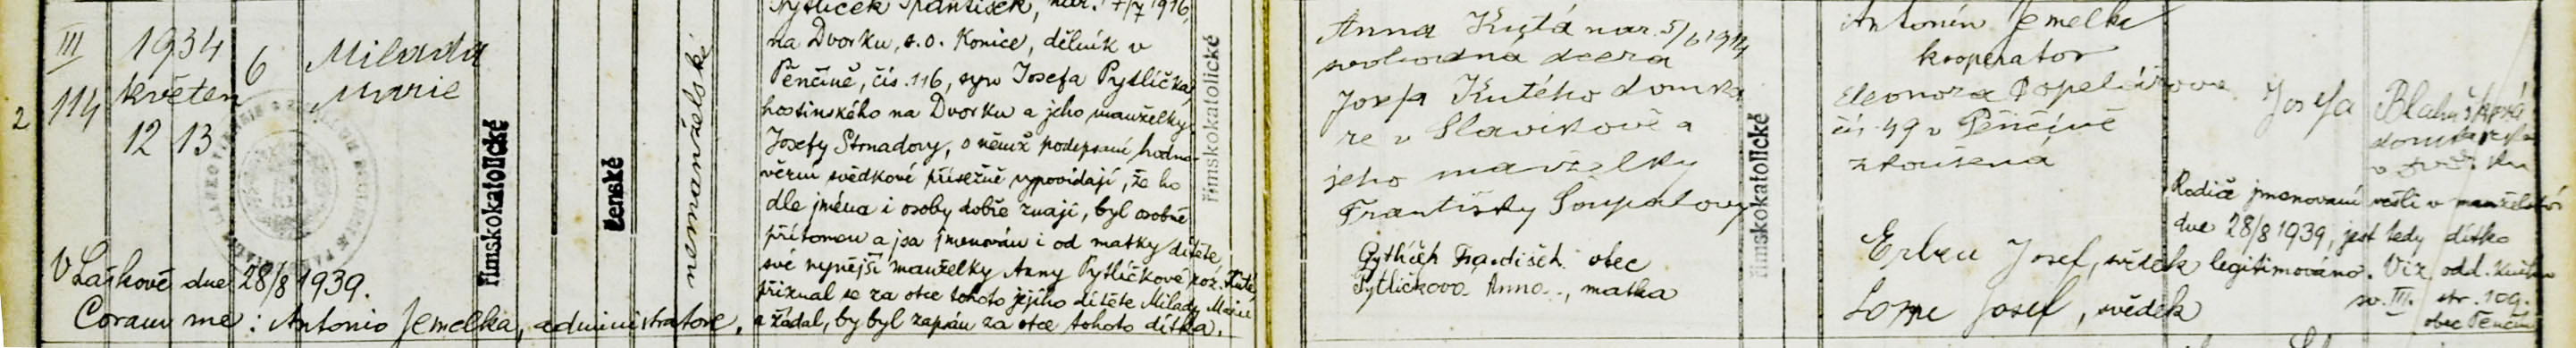 2
III
114
1934
květen
12 13
6
Milada
Marie
římskokatolické
ženské
nemanželské
V Laškově dne 28/8 1939.
Coram me: Antonio Jemelka, administratore.
Pytlíček František, nar. 7/7 1916,
na Dvorku, s.o. Konice, dělník v
Pěnčíně, čís. 116, syn Josefa Pytlíčka,
hostinského na Dvorku a jeho manželky
Josefy Strnadovy, o němž podepsaní hodno-
věrní svědkové přísežně vypovídají, že ho
dle jména i osoby dobře znají, byl osobně
přítomen a jsa jmenován i od matky dítěte,
své nynější manželky Anny Pytlíčkové roz. Kuté,
přiznal se za otce tohoto jejího dítěte Milady Marie
a žádal, by byl zapsán za otce tohoto dítka.
římskokatolické
Anna Kutá nar. 5/6 1914
svobodná dcera
Josefa Kutého domka
ře v Slavíkově a
jeho manželky
Františky Soupalovy
Pytlíček František otec
Pytlíčkova Anna, matka
římskokatolické
Antonín Jemelka
kooperator
Eleonora Popelářova
čís. 49 v Pěnčíně
zkoušená
Erben Josef, svědek
Josef, svědek
Josefa Blahušková
domkařka
v
Rodiče jmenovaní vešli v manželství
dne 28/8 1939, jest tedy dítko
legitimováno. Viz odd. kniha
sv. III. str. 109.
obec Pěnčín